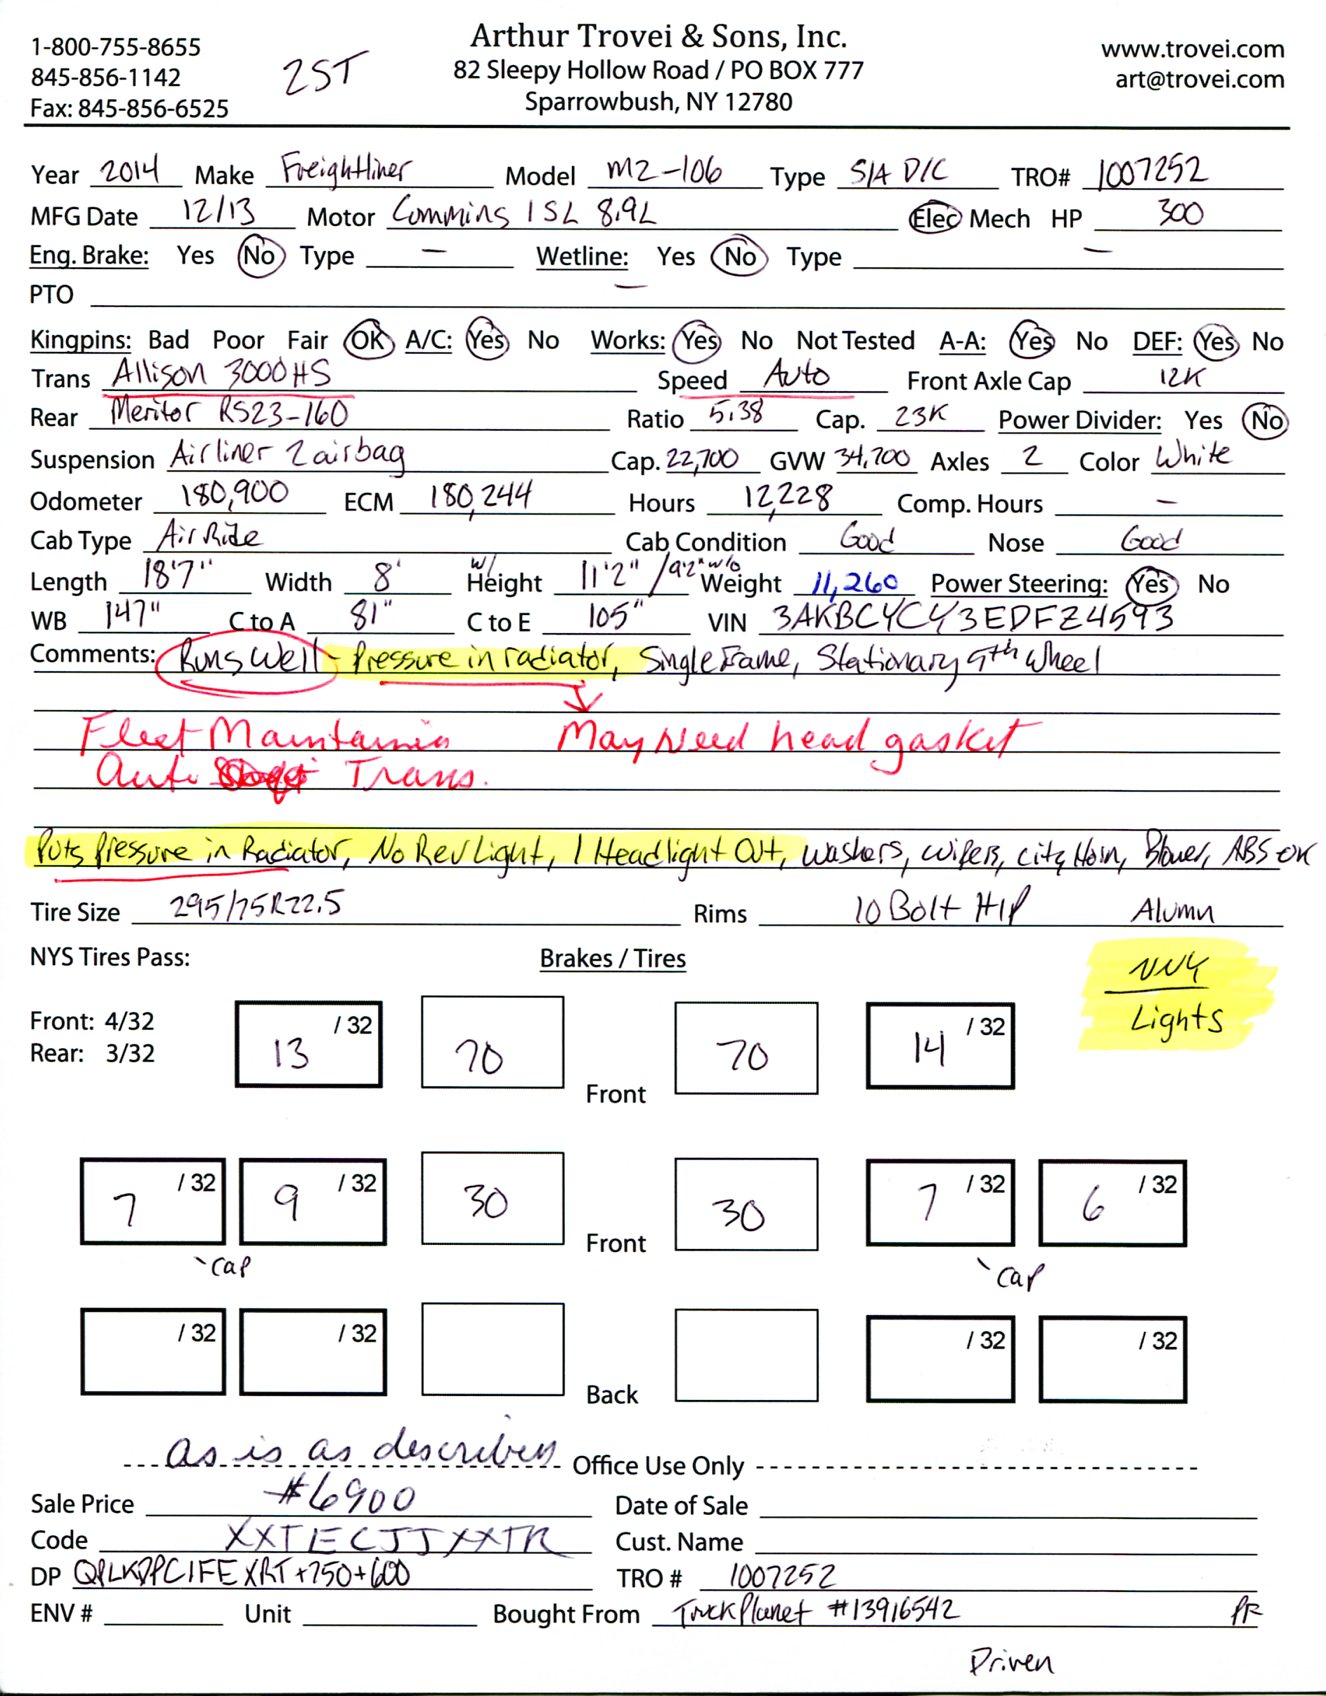 1-800-755-8655
845-856-1142
Fax: 845-856-6525
2ST
Arthur Trovei & Sons, Inc.
82 Sleepy Hollow Road / PO BOX 777
Sparrowbush, NY 12780
www.trovei.com
art@trovei.com
Year 2014 Make Freightliner Model M2-106 Type S/A D/C TRO# 1007252
MFG Date 12/13 Motor Cummins ISL 8.9L Elec Mech HP 300
Eng. Brake: Yes No Type — Wetline: Yes No Type —
PTO —
Kingpins: Bad Poor Fair OK A/C: Yes No Works: Yes No Not Tested A-A: Yes No DEF: Yes No
Trans Allison 3000HS Speed Auto Front Axle Cap 12K
Rear Meritor RS23-160 Ratio 5.38 Cap. 23K Power Divider: Yes No
Suspension Airliner 2 airbag Cap. 22,700 GVW 34,700 Axles 2 Color White
Odometer 180,900 ECM 180,244 Hours 12,228 Comp. Hours —
Cab Type Air Ride Cab Condition Good Nose Good
Length 18'7" Width 8' w/ Height 11'2" / 9'2" w/o Weight 11,260 Power Steering: Yes No
WB 147" C to A 81" C to E 105" VIN 3AKBCYCY3EDFZ4593
Comments: Runs Well - Pressure in radiator, Single Frame, Stationary 5th Wheel
Fleet Maintainis May Need head gasket
Auto Trans.
Puts Pressure in Radiator, No Rev Light, 1 Headlight Out, Washers, Wipers, City Horn, Blower, ABS OK
Tire Size 295/75R22.5 Rims 10 Bolt H/P Alumn
NYS Tires Pass:
Brakes / Tires
NNY
Lights
Front: 4/32
Rear: 3/32
13 /32 70 Front 70 14 /32
7 /32 9 /32 30 Front 30 7 /32 6 /32
Cap Cap
/32 /32 Back /32 /32
as is as described
Office Use Only
Sale Price #6900 Date of Sale
Code XXTECJJXXTR Cust. Name
DP QPLKPPCIFEXRT +750+600 TRO # 1007252
ENV # Unit Bought From TruckPlanet #13916542 PR
Driven